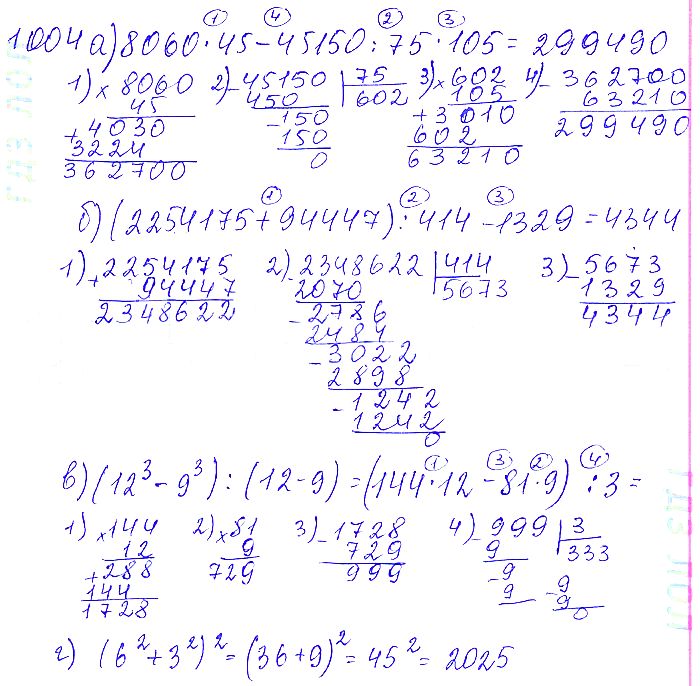 1004 а) 8060 · 45 - 45150 : 75 · 105 = 299490
① ④ ② ③
1) × 8060
45
+ 4030
3224
362700
2) - 45150 | 75
450 602
- 150
150
0
3) × 602
105
+ 3010
602
63210
4) - 362700
63210
299490
① ② ③
б) (2254175 + 94447) : 414 - 1329 = 4344
1) + 2254175
94447
2348622
2) - 2348622 | 414
2070 5673
- 2786
2484
- 3022
2898
- 1242
1242
0
3) - 5673
1329
4344
① ③ ② ④
в) (12³ - 9³) : (12 - 9) = (144 · 12 - 81 · 9) : 3 =
1) × 144
12
+ 288
144
1728
2) × 81
9
729
3) - 1728
729
999
4) - 999 | 3
9 333
- 9
9
- 9
9
0
г) (6² + 3²)² = (36 + 9)² = 45² = 2025